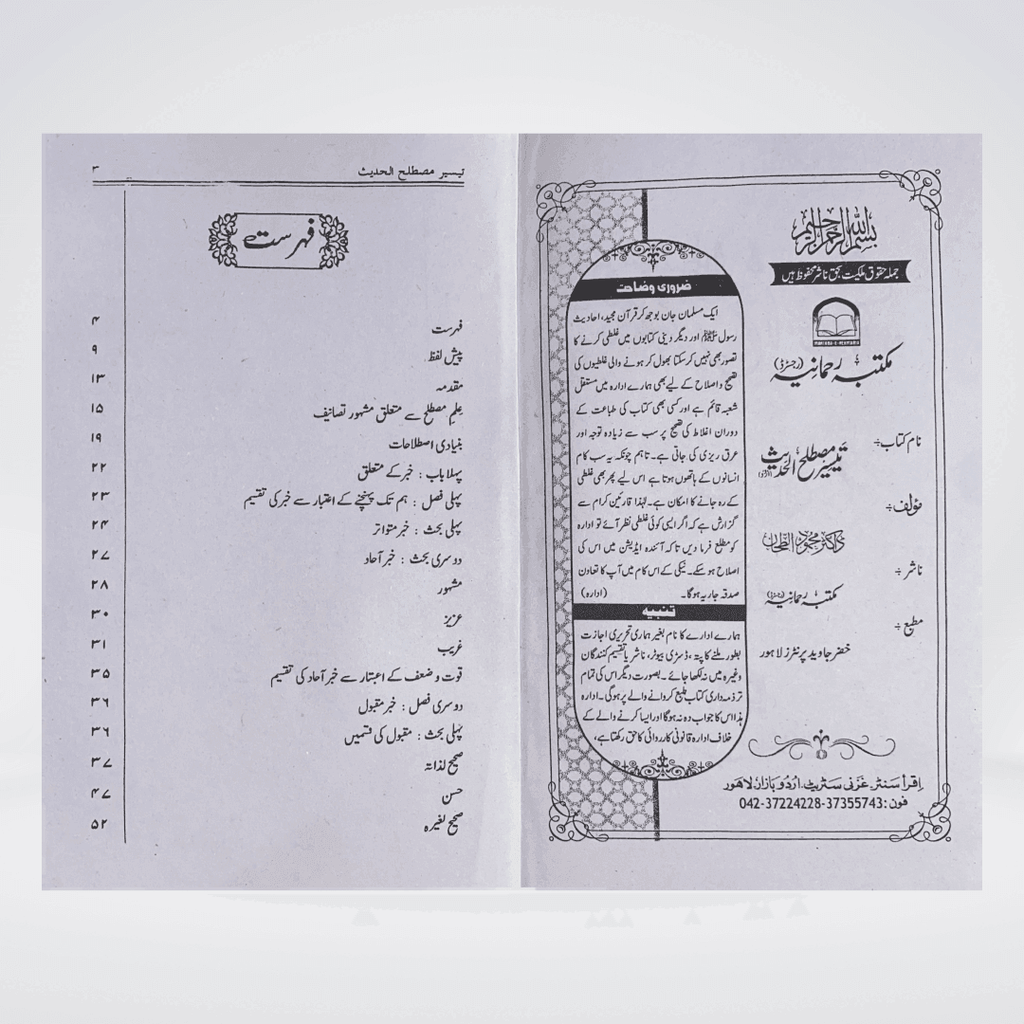 بسم الله الرحمن الرحيم
جملہ حقوق ملکیت بحق ناشر محفوظ ہیں
MAKTABA-E-REHMANIA
مکتبہ رحمانیہ (رجسٹرڈ)
نام کتاب ÷
تیسیر مصطلح الحدیث (اردو)
مؤلف ÷
ڈاکٹر محمود الطحان
ناشر ÷
مکتبہ رحمانیہ (رجسٹرڈ)
مطبع ÷
خضر جاوید پرنٹرز لاہور
اِقرأ سَنٹر غزنی سٹریٹ، اُردو بَازار لاھور
فون: 37355743-37224228-042
ضروری وضاحت
ایک مسلمان جان بوجھ کر قرآن مجید، احادیث
رسول ﷺ اور دیگر دینی کتابوں میں غلطی کرنے کا
تصور بھی نہیں کر سکتا بھول کر ہونے والی غلطیوں کی
تصحیح و اصلاح کے لیے بھی ہمارے ادارہ میں مستقل
شعبہ قائم ہے اور کسی بھی کتاب کی طباعت کے
دوران اغلاط کی تصحیح پر سب سے زیادہ توجہ اور
عرق ریزی کی جاتی ہے۔ تاہم چونکہ یہ سب کام
انسانوں کے ہاتھوں ہوتا ہے اس لیے پھر بھی غلطی
کے رہ جانے کا امکان ہے۔ لہٰذا قارئین کرام سے
گزارش ہے کہ اگر ایسی کوئی غلطی نظر آئے تو ادارہ
کو مطلع فرما دیں تاکہ آئندہ ایڈیشن میں اس کی
اصلاح ہو سکے۔ نیکی کے اس کام میں آپ کا تعاون
صدقہ جاریہ ہوگا۔ (ادارہ)
تنبیہ
ہمارے ادارے کا نام بغیر ہماری تحریری اجازت
بطور ملنے کا پتہ، ڈسٹری بیوٹر، ناشر یا تقسیم کنندگان
وغیرہ میں نہ لکھا جائے۔ بصورت دیگر اس کی تمام
تر ذمہ داری کتاب طبع کروانے والے پر ہوگی۔ ادارہ
ہذا اس کا جواب دہ نہ ہوگا اور ایسا کرنے والے کے
خلاف ادارہ قانونی کارروائی کا حق رکھتا ہے،
تیسیر مصطلح الحدیث ۳
فہرست
فہرست ۴
پیش لفظ ۹
مقدمہ ۱۳
علم مصطلح سے متعلق مشہور تصانیف ۱۵
بنیادی اصطلاحات ۱۹
پہلا باب : خبر کے متعلق ۲۲
پہلی فصل : ہم تک پہنچنے کے اعتبار سے خبر کی تقسیم ۲۳
پہلی بحث : خبر متواتر ۲۴
دوسری بحث : خبر آحاد ۲۷
مشہور ۲۸
عزیز ۳۰
غریب ۳۱
قوت و ضعف کے اعتبار سے خبر آحاد کی تقسیم ۳۵
دوسری فصل : خبر مقبول ۳۶
پہلی بحث : مقبول کی قسمیں ۳۶
صحیح لذاتہ ۳۷
حسن ۴۷
صحیح لغیرہ ۵۲